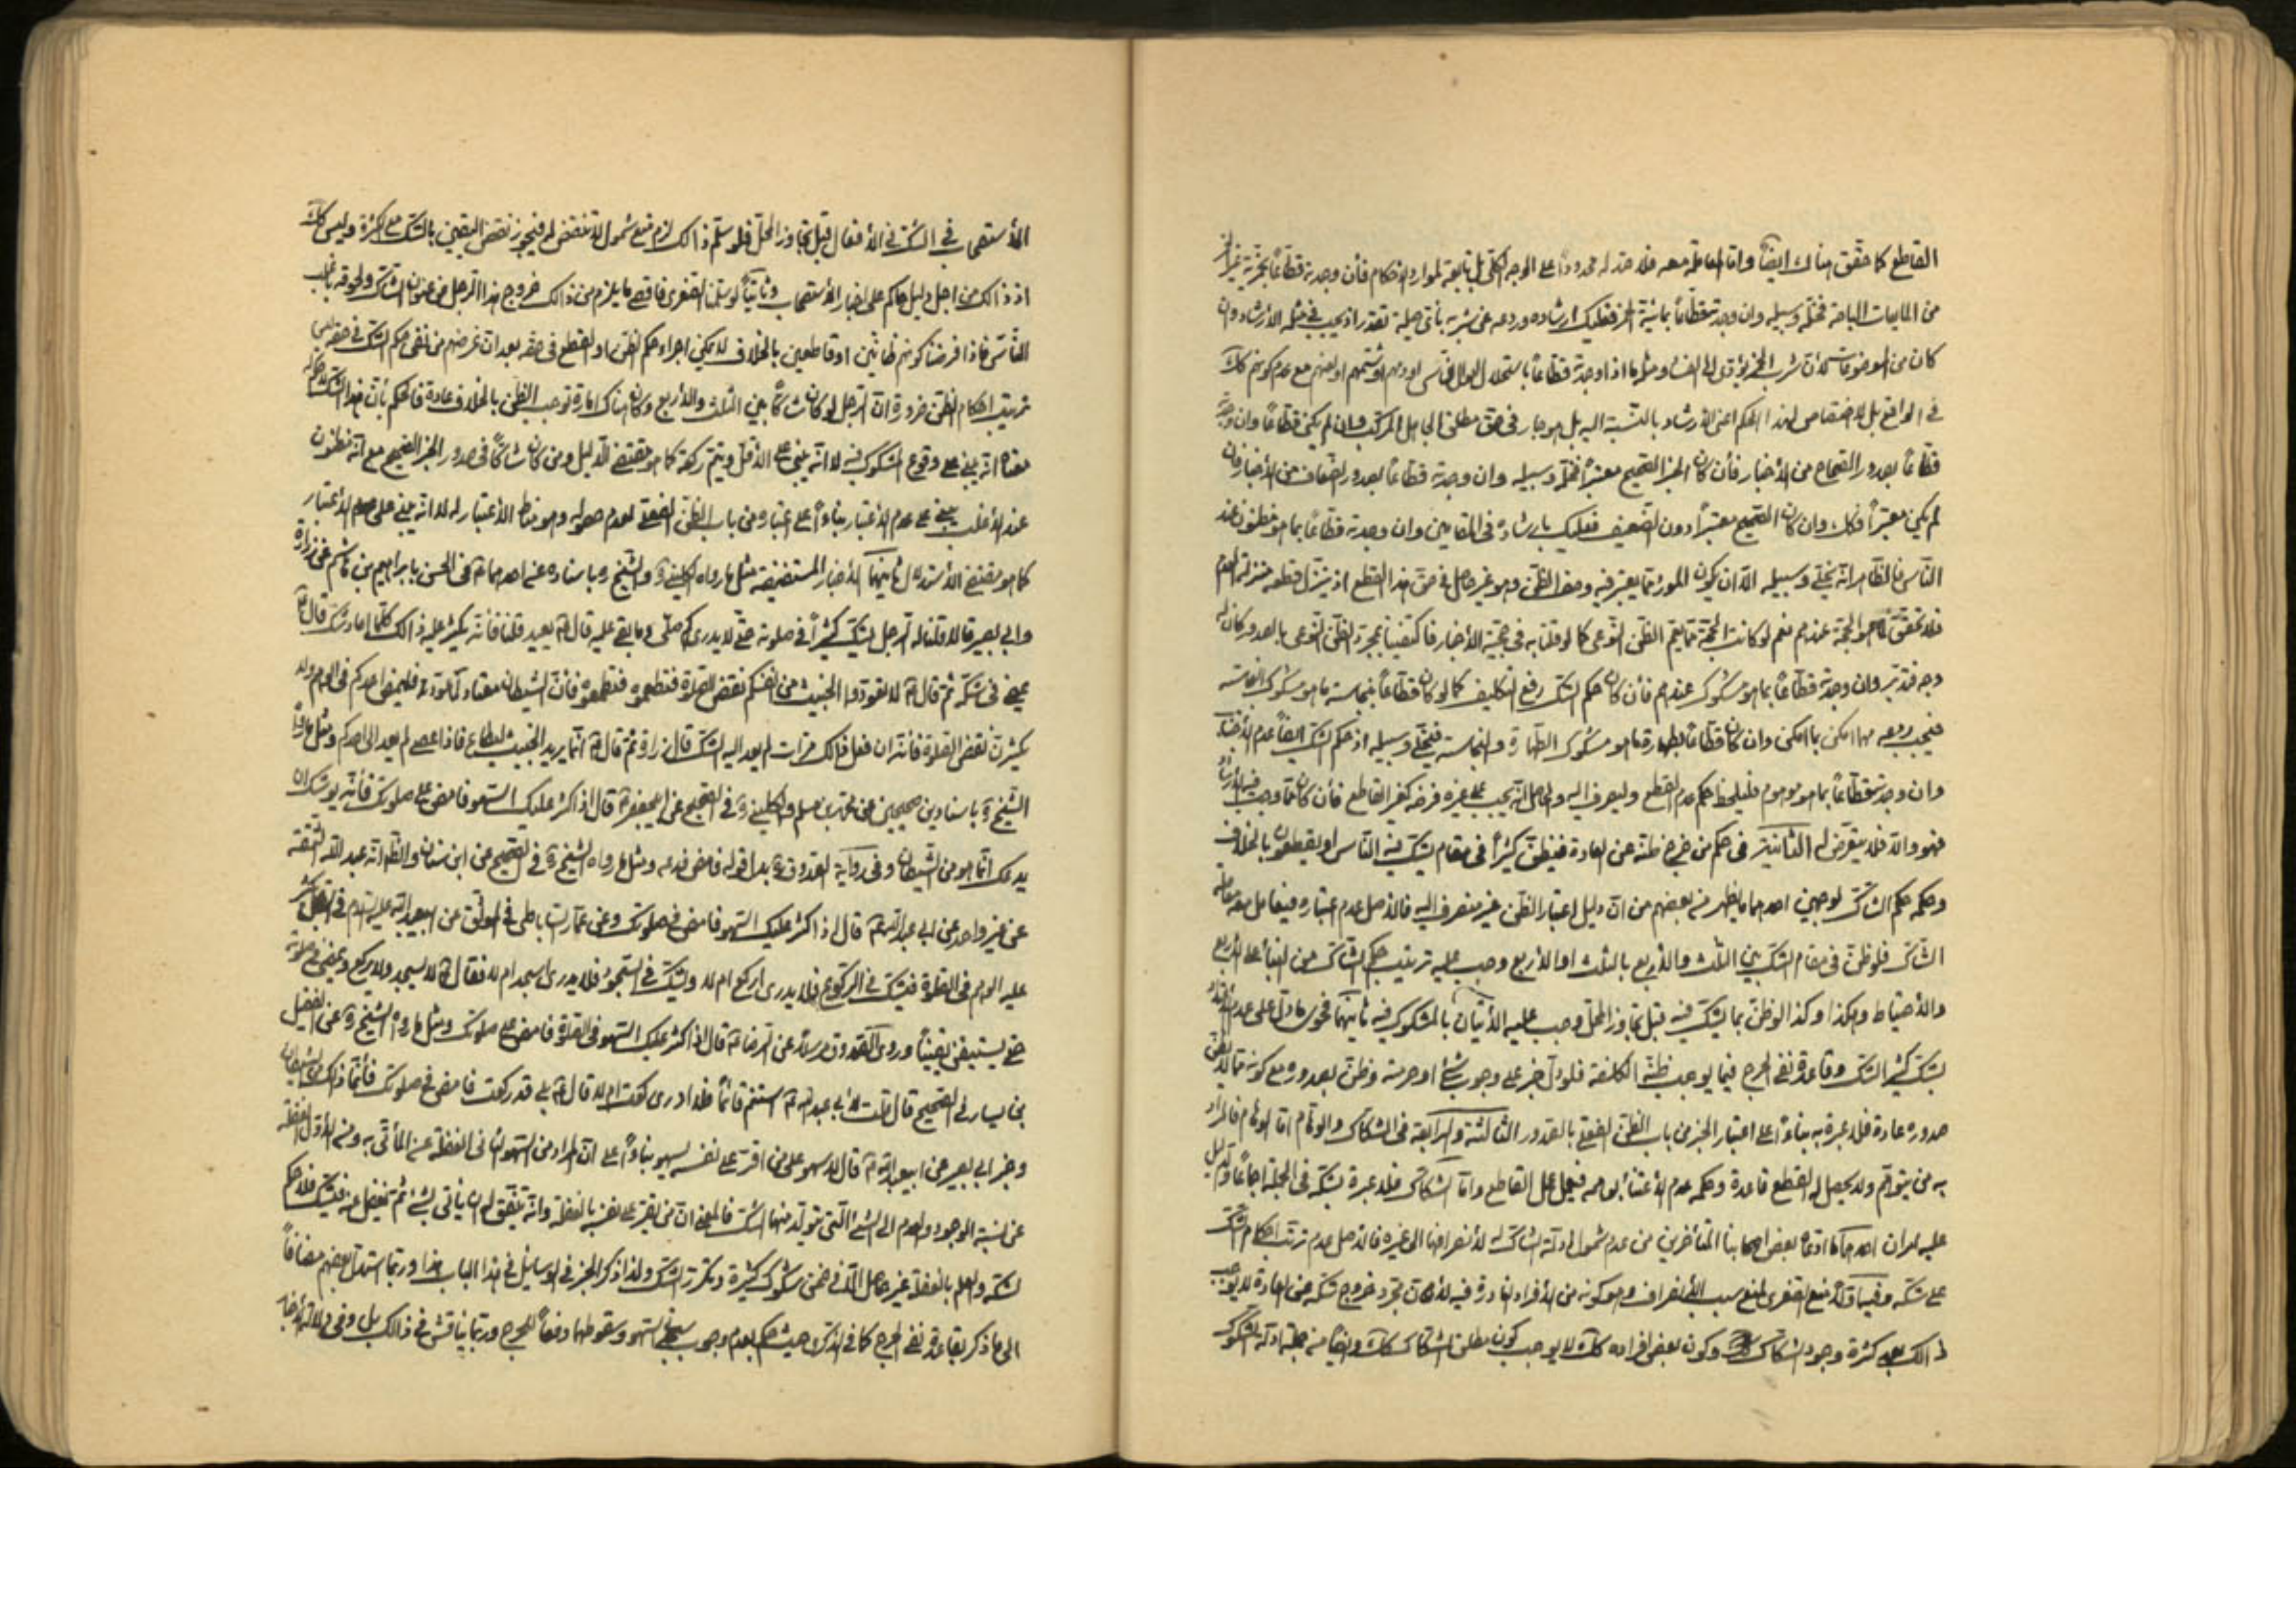 القاطع كما حقّق هناك ايضاً وامّا المعاملة معه فلا حدّ له محدوداً على الوجه الكلّى بل تابعة لموارد الاحكام فأن وجدته قطّاعاً بخمريّة
من المايعات المباحة فخلّه وسبيله وان وجدته قطّاعاً بمائيّة الخمر فعليك ارشاده وردعه عن شربه بأىّ حيلة تقدر اذ يجب فى مثله الأرشاد وان
كان من الموضوعات لأنّ شرب الخمر يؤدّى الى الفساد ومثل ما اذا وجدته قطّاعاً باستحلال اموال النّاس او دمهم او شتمهم مع عدم كونهم كذلك
فى الواقع بل لا اختصاص لهذا الحكم اعنى الأرشاد بالنّسبة اليه بل هو جار فى حق مطلق الجاهل المركّب وان لم يكن قطّاعاً وان وجدته
قطّاعاً بصدور الصّحاح من الأخبار فأن كان الخبر الصّحيح معتبراً فخلّه وسبيله وان وجدته قطّاعاً بصدور الضّعاف من الأخبار فان
لم يكن معتبراً فكذلك وان كان الصّحيح معتبراً دون الضّعيف فعليك بارشاده فى المقامين وان وجدته قطّاعاً بما هو مظنون عند
النّاس فالظّاهر انّه يخلّى وسبيله الّا ان يكون المورد ممّا يعتبر فيه وصف الظّن وهو غير حاصل فى حق هذا القطع اذ يتنزّل قطعه منزلة العدم
فلا تحقّق لما هو الحجّة عندهم نعم لو كانت الحجّة ممّا يعمّ الظّن النّوعى كما لو قلنا به فى حجّية الأخبار فاكتفينا بمجرّد الظّن النّوعى بالصدور كان له
وجه فتدبّر وان وجدته قطّاعاً بما هو مشكوك عندهم فأن كان حكم الشّك رفع التكليف كما لو كان قطّاعاً بنجاسة ما هو مشكوك النجاسة
فيجب ردعه مهما امكن بما امكن وان كان قطّاعاً بطهارة ما هو مشكوك الطّهارة والنجاسة فيخلّى وسبيله اذ حكم الشّك ايضاً عدم الأجتناب
وان وجدته قطّاعاً بما هو موهوم فليلحظ حكم عدم القطع وليصرف اليه والحاصل انّه يجب على غيره فرضه كغير القاطع فأن كان ممّا وجب فيه الأرشاد
فهو والّا فلا يتعرّض له الثّانية فى حكم من خرج ظنّه عن العادة فيظنّ كثيراً فى مقام يشكّ فيه النّاس او يقطعون بالخلاف
وحكمه حكم الشّاكّ لوجهين احدهما ما يظهر من بعضهم من انّ دليل اعتبار الظّن غير منصرف اليه فالأصل عدم اعتباره فيعامل معه معاملة
الشّاكّ فلو ظنّ فى مقام الشّك بين الثّلث والأربع بالثلث او الأربع وجب عليه ترتيب حكم الشّاكّ من البناء على الأربع
والأحتياط وهكذا وكذا لو ظنّ بما يشكّ فيه قبل تجاوز المحلّ وجب عليه الأتيان بالمشكوك فيه ثانيهما فحوى ما دلّ على عدم الأعتداد
بشكّ كثير الشّك وقاعدة نفى الحرج فيما يوجب ظنّه الكلفة فلو دلّ خبر على وجوب شئ او حرمته وظنّ بصدوره مع كونه ممّا لا يظنّ
صدوره عادة فلا عبرة به بناءاً على اعتبار الخبر من باب الظّن الفعلى بالصدور الثّالثة والرّابعة فى الشكّاك والوهّام امّا الوهّام فالمراد
به من يتوهّم ولا يحصل له القطع قاعدة وحكمه عدم الأعتناء بوهمه فيعمل عمل القاطع وامّا الشّكّاك فلا عبرة بشكّه فى الجملة اجماعاً والدّليل
عليه امران احدهما ما ادّعاه بعض اصحابنا المتأخرين من عدم شمول ادلّة الشّاكّ له لأنصرافها الى غيره فالأصل عدم ترتّب احكام الشّكّ
على شكّه وفيه اوّلاً منع الصّغرى لمنع سبب الأنصراف وهو كونه من الأفراد النّادرة فيه لأنّ مجرّد خروج شكّه عن العادة لا يوجب
ذالك بعد كثرة وجود الشكّاك وكون بعض افراده كذلك لا يوجب كون مطلق الشّكّاك كذلك وايضاً من جملة ادلّة الشّكوك
الأستصحاب فى الشّكّ فى الأفعال قبل تجاوز المحلّ فلو سلّم ذالك لزم منع شمول لا تنقض له فيجوز نقض اليقين بالشّك مع الكثرة وليس كذلك
اذ ذالك من اجل دليل حاكم على اخبار الأستصحاب وثانياً لو سلّمنا الصّغرى فاقصى ما يلزم من ذالك خروج هذا الرّجل من عنوان الشّاكّ ولحوقه بغالب
النّاس فاذا فرضنا كونهم ظانّين او قاطعين بالخلاف لا يمكن اجراء حكم الظّن او القطع فى حقه بعد ان غرضهم من نفى حكم الشّك فى حقه
ترتيب احكام الظّن ضرورة انّ الرّجل لو كان شاكّاً بين الثلث والأربع وكان هناك امارة توجب الظّن بالخلاف عادة فالحكم بأنّ هذا الشّك لا حكم له
معناه انّه يبنى على وقوع المشكوك فيه لا انّه يبنى على الأقلّ ويتمّ ركعة كما هو مقتضى الدّليل ومن كان شاكّاً فى صدور الخبر الصّحيح مع انّه مظنون
عند الأغلب يبنى على عدم الأعتبار بناءاً على اعتباره من باب الظّن الفعلى لعدم حصوله وهو مناط الأعتبار له لا انّه يبنى على الأعتبار
كما هو مقتضى الأستدلال ثانيهما الأخبار المستفيضة مثل ما رواه الكلينى ره والشّيخ ره باسناده عن احدهما فى الحسن بابراهيم بن هاشم عن زرارة
وابى بصير قالا قلنا له الرّجل يشكّ كثيراً فى صلوته حتّى لا يدرى كم صلّى وما بقى عليه قال ع يعيد قلنا فانّه يكثر عليه ذالك كلّما اعاد شكّ قال ع
يمضى فى شكّه ثمّ قال ع لا تعوّدوا الخبيث من انفسكم نقض الصّلوة فتطمعوه فأنّ الشّيطان معتاد لما عوّد فليمض احدكم فى الوهم ولا
يكثرنّ نقض الصّلوة فأنّه ان فعل ذالك مرّات لم يعد اليه الشّك قال زرارة ثمّ قال ع انّما يريد الخبيث ليطاع فاذا عصى لم يعد الى احدكم ومثل ما رواه
الشّيخ ره باسنادين صحيحين عن محمّد بن مسلم والكلينى ره فى الصّحيح عن ابيجعفر ع قال اذا كثر عليك السّهو فامض على صلوتك فأنّه يوشك ان
يدعك انّما هو من الشّيطان وفى رواية الصّدوق ره بدل قوله فامض فدعه ومثل ما رواه الشّيخ ره فى الصّحيح عن ابن سنان والظّ انّه عبد اللّه الثّقة
عن غير واحد عن ابى عبد اللّه ع قال اذا كثر عليك السّهو فامض فى صلوتك وعن عمّار السّاباطى فى الموثّق عن ابيعبد اللّه عليه السّلام فى الرّجل يكثر
عليه الوهم فى الصّلوة فيشكّ فى الرّكوع فلا يدرى اركع ام لا ويشكّ فى السّجود فلا يدرى اسجد ام لا فقال ع لا يسجد ولا يركع ويمضى فى صلوته
حتّى يستيقن يقيناً وروى الصّدوق مرسلاً عن الرّضا ع قال اذا كثر عليك السّهو فى الصّلوة فامض على صلوتك ومثل ما رواه الشّيخ ره عن الفضيل
بن يسار فى الصّحيح قال قلت لأبى عبد اللّه ع استتمّ قائماً فلا ادرى ركعت ام لا قال ع بلى قد ركعت فامض فى صلوتك فأنّما ذالك من الشّيطان
وخبر ابى بصير عن ابيعبد اللّه ع قال لا سهو على من اقرّ على نفسه بسهو بناءاً على انّ المراد من السّهو الثّانى الغفلة عن المأتّى به ومن الأوّل الغفلة
عن نسبة الوجود والعدم الى الشئ الّتى يتولّد منها الشّك فالمعنى انّ من يقرّ على نفسه بالغفلة وانّه يتّفق له ان يأتى بشئ ثمّ يغفل عنه فيشكّ فلا حكم
لشكّه والعلم بالغفلة غير حاصل الّا فى ضمن شكوك كثيرة وتكرّر الشّك ولذا ذكر الخبر فى الوسايل فى هذا الباب هذا وربّما استدلّ بعضهم مضافاً
الى ما ذكر بقاعدة نفى الحرج كما فى الذّكرى حيث حكم بعدم وجوب سجدتى السّهو وسقوطها دفعاً للحرج وربّما يناقش فى ذالك بل وفى دلالة الأخبار